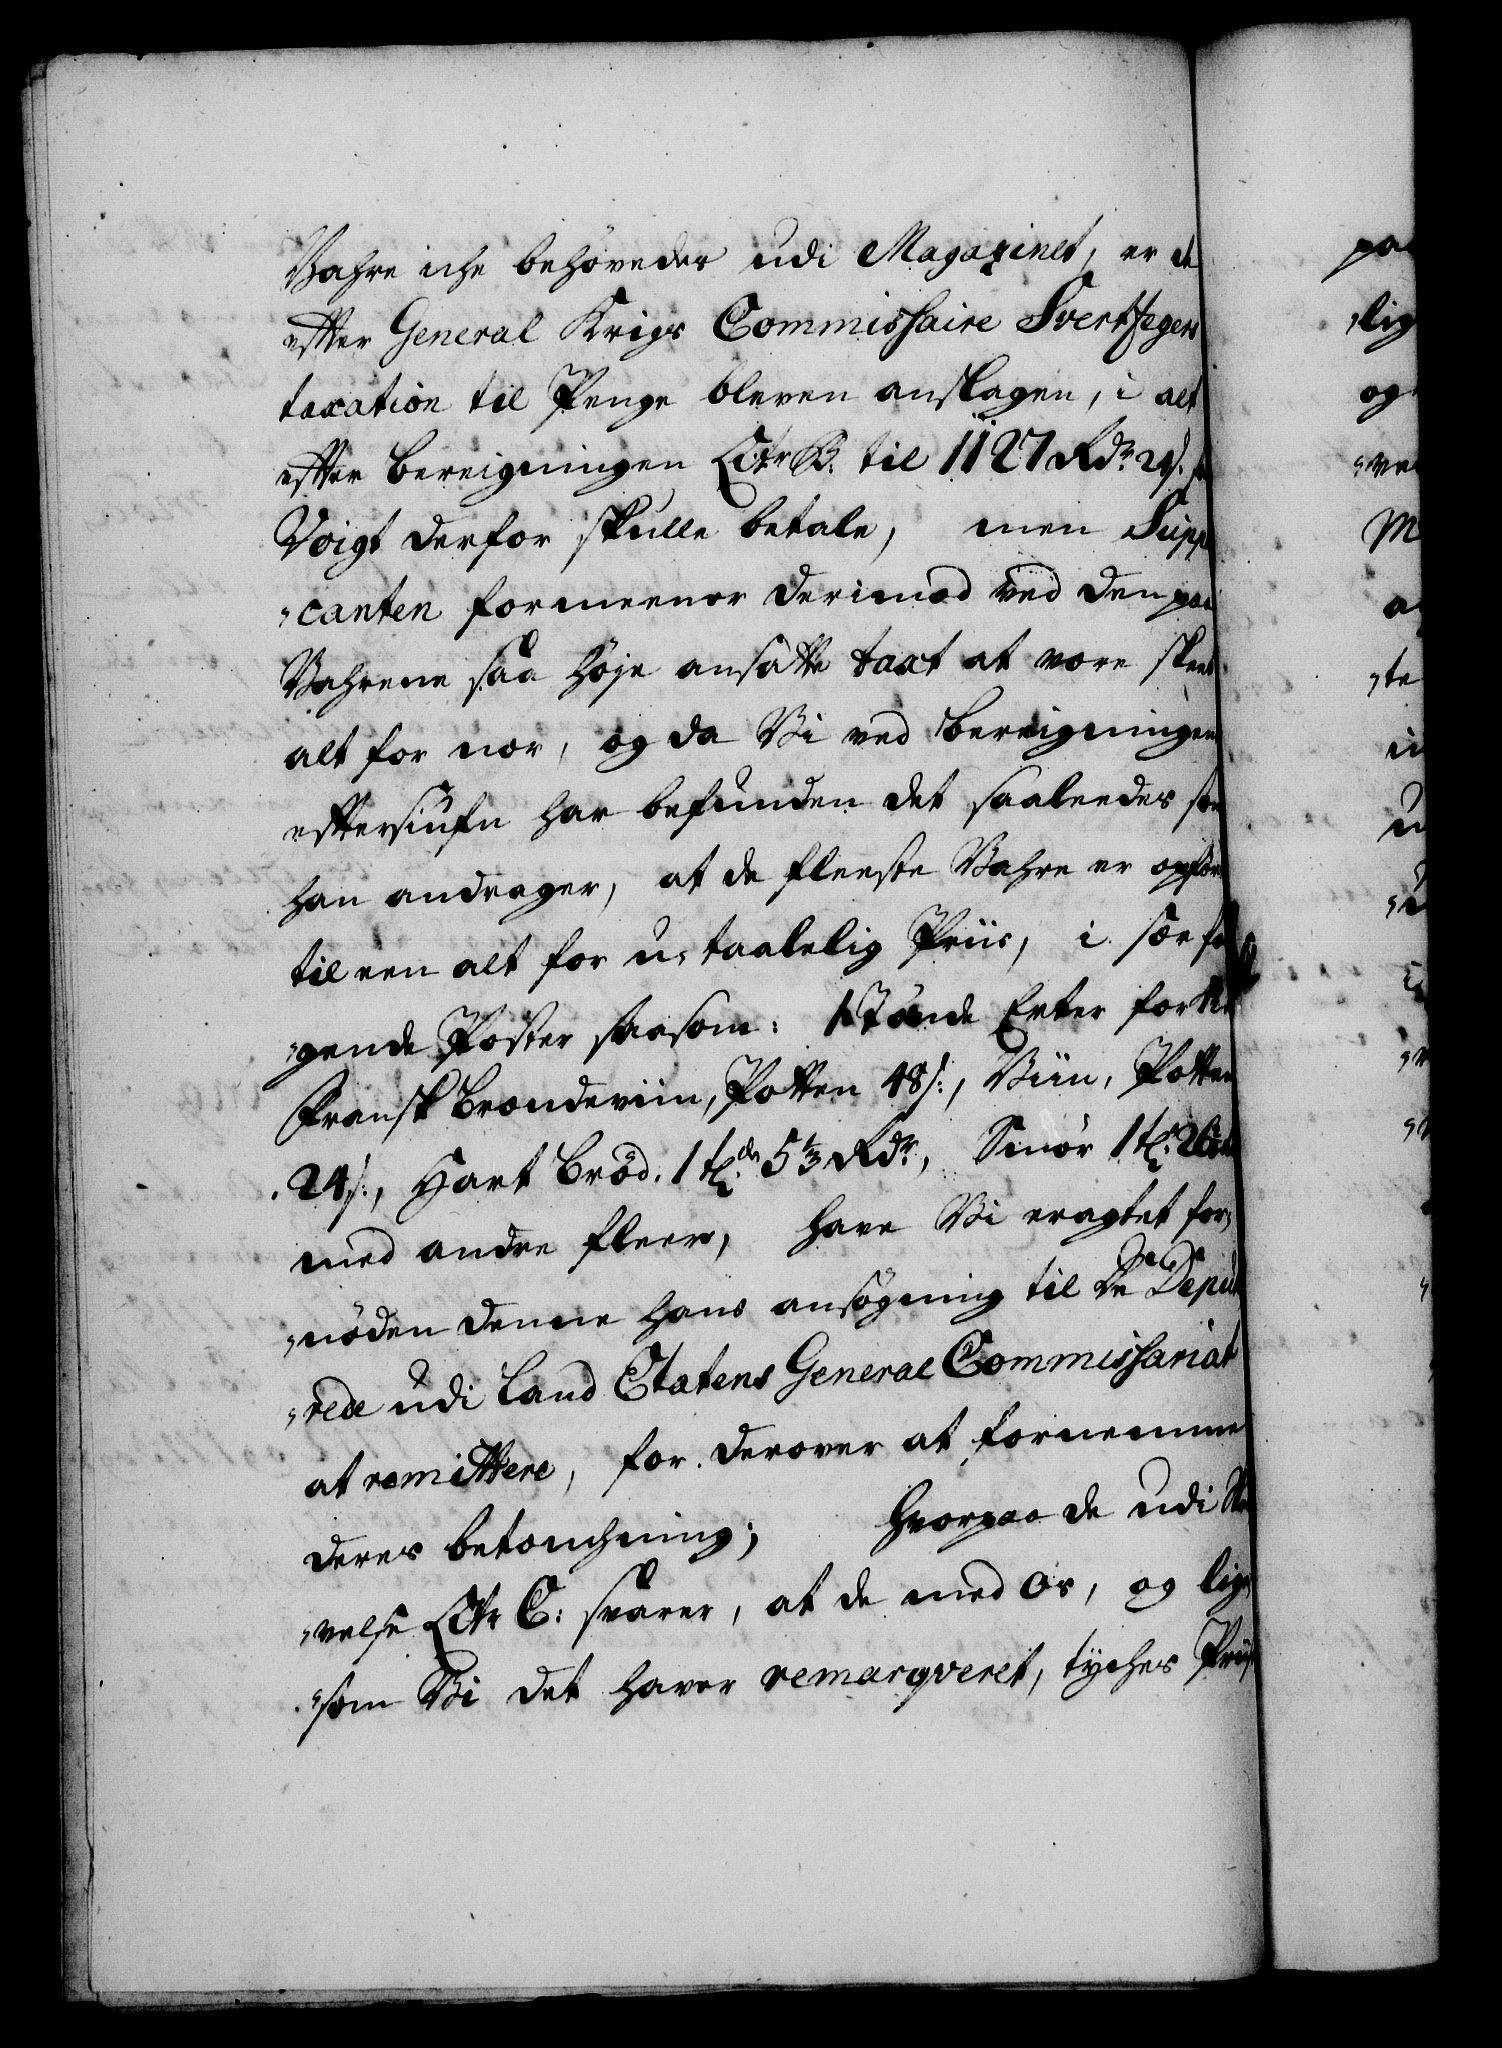 Vahre iche behøvedes udi Magazinet, er de
efter General Krigs Commissaire Svertfegers
taxation til Penge bleven anslagen, i alt
efter bereigningen Litr B. til 1127 Rdr 2 s.
Voigt derfor skulle betale, men Suppli
„canten formeener derimod ved den paa
Vahrene saa høje ansatte taxt at være skeet
alt for nær, og da Vi ved bereigningens
eftersiufn har befunden det saaleedes som
han andrager, at de fleeste Vahre er opført
til een alt for u-taalelig Priis, i sær føl
„gende Poster saasom: 1 Tønde Erter for
Fransk Brændeviin, Potten 48 s:, Viin, Potten
24 s:, Hart Brød. 1 tde 5⅓ Rdr, Smør 1 td:
med andre fleere, have Vi eragtet for
„nøden denne hans ansøgning til De Depute
„rede udi Land Etatens General Commissariat
at remittere, for derover at fornemme
deres betenchning; Hvorpaa de udi Skri
„velse Litr C: svarer, at de med Os, og lige
„som Vi det haver remarqveret, tyches Priis
paa
„lig
og
„ve
M
a
„te